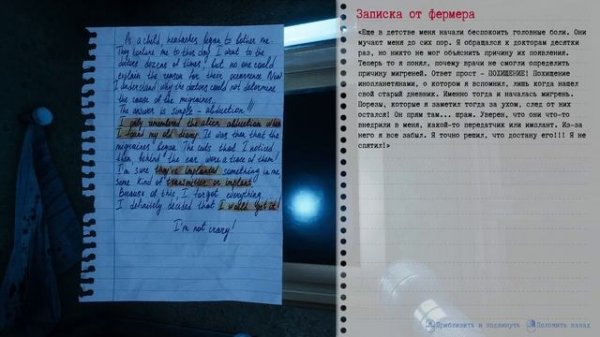 As a child, headaches began to bother me.
They torture me to this day. I went to the
doctors dozens of times, but no one could
explain the reason for their occurrence. Now
I understand why the doctors could not determine
the cause of the migraines.
The answer is simple - abduction!!!
I only remembered the alien abduction when
I found my old deary. It was then that the
migraines began. The cuts that I noticed
then, behind the ear were a trace of them!
I'm sure they've implanted something in me
some kind of transmitter or implant
Because of this, I forgot everything.
I definitely decided that I would get it!
I'm not crazy!
Записка от фермера
«Еще в детстве меня начали беспокоить головные боли. Они
мучают меня до сих пор. Я обращался к докторам десятки
раз, но никто не мог объяснить причину их появления.
Теперь то я понял, почему врачи не смогли определить
причину мигреней. Ответ прост - ПОХИЩЕНИЕ! Похищение
инопланетянами, о котором я вспомнил, лишь когда нашел
свой старый дневник. Именно тогда и началась мигрень.
Порезы, которые я заметил тогда за ухом, след от них
остался! Он прям там... прям. Уверен, что они что-то
внедрили в меня, какой-то передатчик или имплант. Из-за
него я все забыл. Я точно решил, что достану его!!! Я не
спятил!»
Приблизить и подвинуть Положить назад